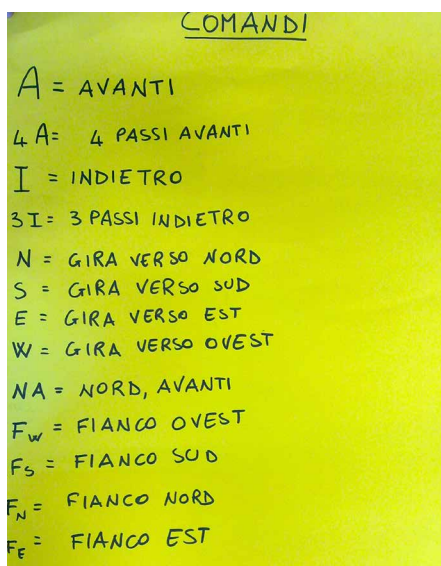 COMANDI
A = AVANTI
4A= 4 PASSI AVANTI
I = INDIETRO
3I= 3 PASSI INDIETRO
N = GIRA VERSO NORD
S = GIRA VERSO SUD
E = GIRA VERSO EST
W = GIRA VERSO OVEST
NA = NORD, AVANTI
Fw = FIANCO OVEST
Fs = FIANCO SUD
FN = FIANCO NORD
FE = FIANCO EST